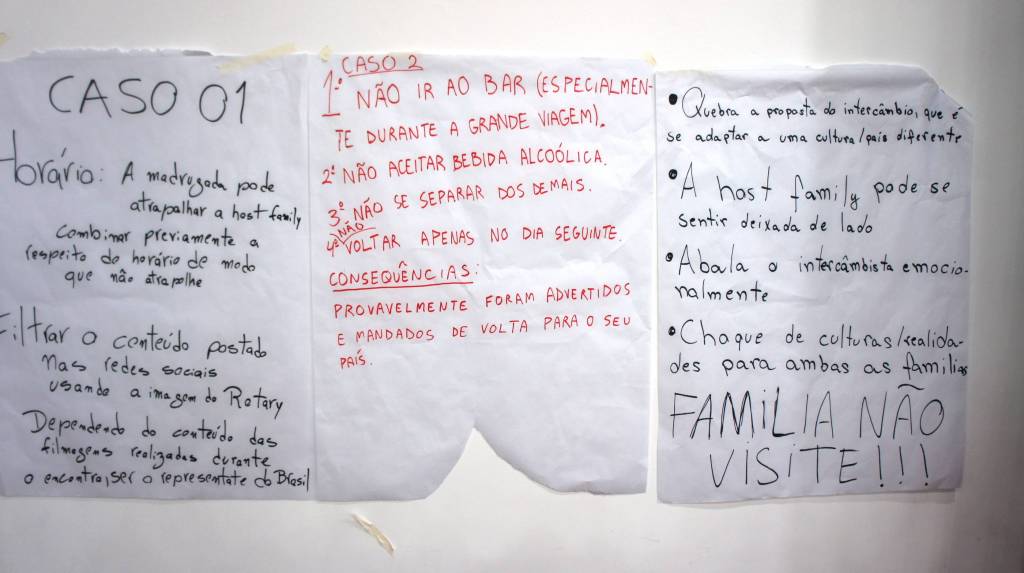 CASO 01
Horário: A madrugada pode
atrapalhar a host family
Combinar previamente a
respeito do horário de modo
que não atrapalhe
Filtrar o conteúdo postado
nas redes sociais
usando a imagem do Rotary
Dependendo do conteúdo das
filmagens realizadas durante
o encontro, ser o representate do Brasil
CASO 2
1º NÃO IR AO BAR (ESPECIALMEN-
TE DURANTE A GRANDE VIAGEM).
2º NÃO ACEITAR BEBIDA ALCOÓLICA.
3º NÃO SE SEPARAR DOS DEMAIS.
4º NÃO VOLTAR APENAS NO DIA SEGUINTE.
CONSEQUÊNCIAS:
PROVAVELMENTE FORAM ADVERTIDOS
E MANDADOS DE VOLTA PARA O SEU
PAÍS.
• Quebra a proposta do intercâmbio, que é
se adaptar a uma cultura/país diferente
• A host family pode se
sentir deixada de lado
• Abala o intercâmbista emocio-
nalmente
• Choque de culturas/realida-
des para ambas as famílias
FAMILIA NÃO
VISITE!!!